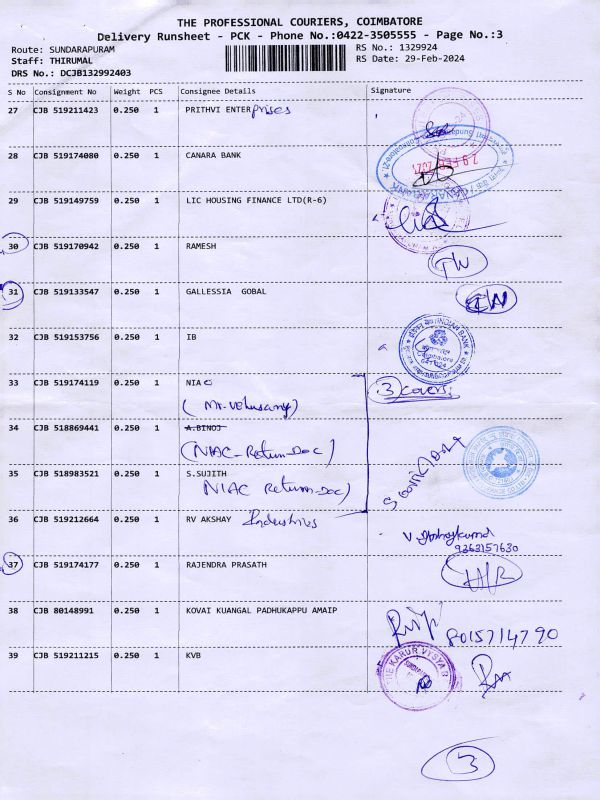 THE PROFESSIONAL COURIERS, COIMBATORE
Delivery Runsheet - PCK - Phone No.:0422-3505555 - Page No.:3
Route: SUNDARAPURAM RS No.: 1329924
Staff: THIRUMAL RS Date: 29-Feb-2024
DRS No.: DCJB132992403
S No Consignment No Weight PCS Consignee Details Signature
27 CJB 519211423 0.250 1 PRITHVI ENTERprises
28 CJB 519174080 0.250 1 CANARA BANK
29 CJB 519149759 0.250 1 LIC HOUSING FINANCE LTD(R-6)
30 CJB 519170942 0.250 1 RAMESH
31 CJB 519133547 0.250 1 GALLESSIA GOBAL
32 CJB 519153756 0.250 1 IB
INDIAN BANK
Coimbatore
641 024
33 CJB 519174119 0.250 1 NIAC 3 covers
34 CJB 518869441 0.250 1 A.BINOJ
(NIAC-Return-Doc)
35 CJB 518983521 0.250 1 S.SUJITH
NIAC Return-Doc)
36 CJB 519212664 0.250 1 RV AKSHAY Industries
9363157630
37 CJB 519174177 0.250 1 RAJENDRA PRASATH
38 CJB 80148991 0.250 1 KOVAI KUANGAL PADHUKAPPU AMAIP
8015714790
39 CJB 519211215 0.250 1 KVB
THE KARUR VYSYA B
3